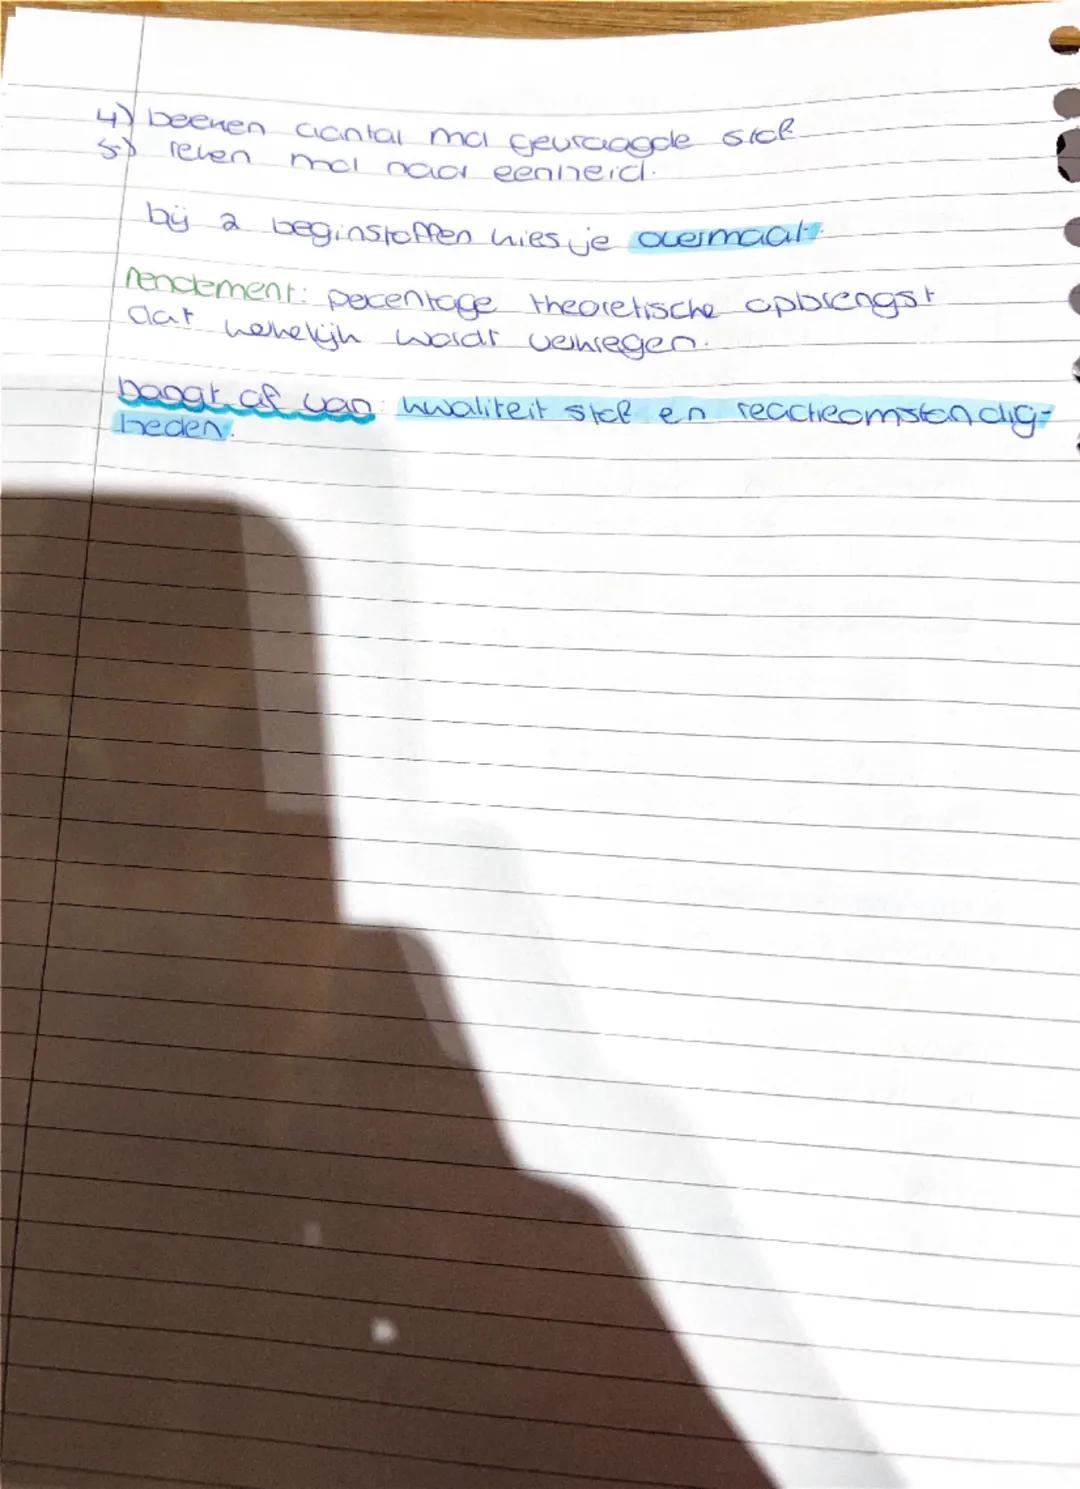 4) bereken aantal mol gevraagde stof
5) reken mol naar eenheid.
bij 2 beginstoffen kies je overmaat.
rendement: pecentage theoretische opbrengst
dat werkelijk wordt verkregen.
Daagt af van: kwaliteit stof en reactieomstandig-
heden.